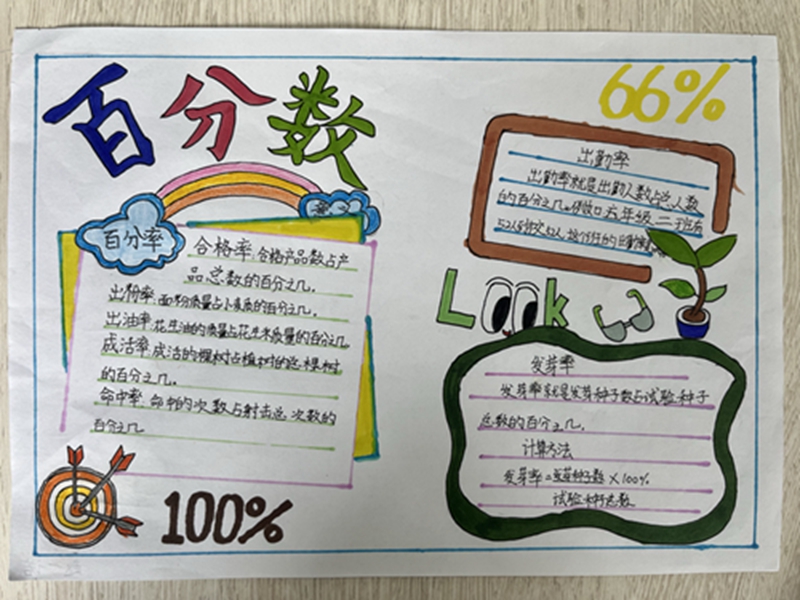 百分数
66%
百分率
合格率:合格产品数占产
品总数的百分之几。
出粉率:面粉质量占小麦质的百分之几。
出油率:花生油的质量占花生米质量的百分之几
成活率:成活的棵树占植树的总棵树
的百分之几。
命中率:命中的次数占射击总次数的
百分之几
100%
出勤率
出勤率就是出勤人数占总人数
的百分之几。六年级二班有
Look
发芽率
发芽率就是发芽种子数占试验种子
总数的百分之几。
计算方法
发芽率=发芽种子数×100%
试验种子总数